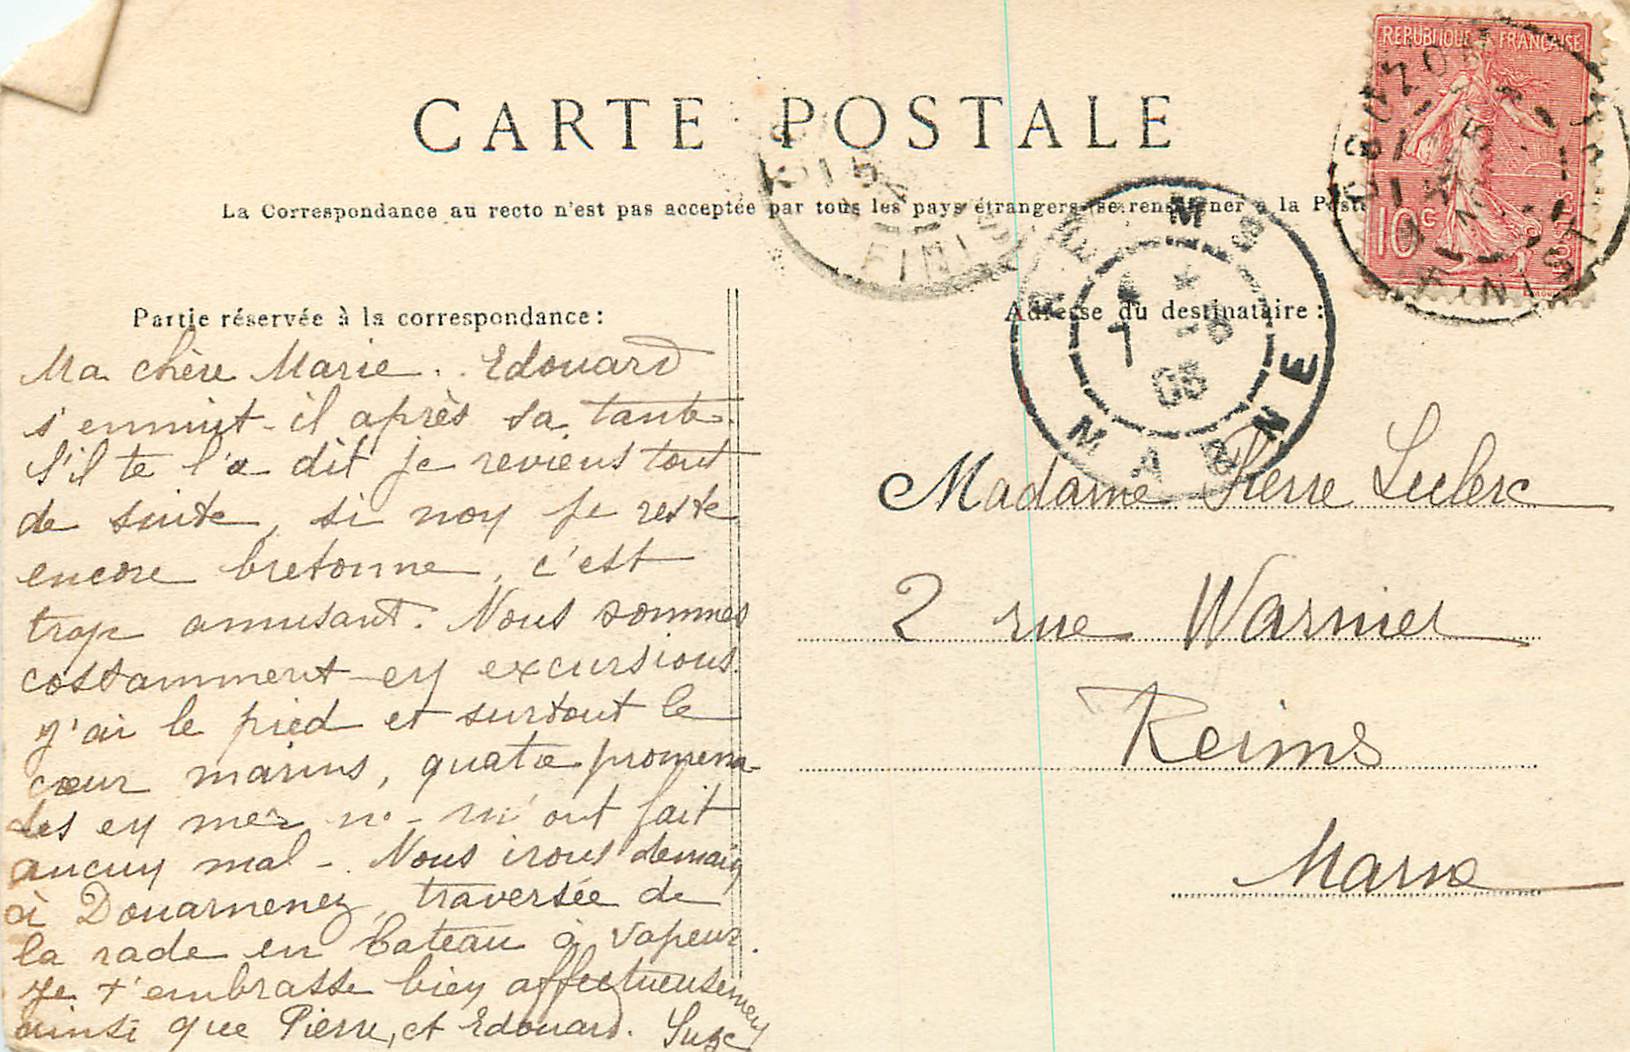 CARTE POSTALE
La Correspondance au recto n'est pas acceptée par tous les pays étrangers (se renseigner à la Poste
REPUBLIQUE FRANÇAISE
10c
POSTES
CROZON
FINIST
FINIS
REIMS
MARNE
7 -8
05
Partie réservée à la correspondance :
Adresse du destinataire :
Ma chère Marie.. Edouard
s'ennuit-il après sa tante
s'il te l'a dit je reviens tout
de suite, si non je reste
encore bretonne, c'est
trop amusant. Nous sommes
costamment en excursions.
J'ai le pied et surtout le
cœur marins, quatre promena-
des en mer ne m'ont fait
aucun mal - Nous irons demain
à Douarnenez, traversée de
la rade en bateau à vapeur.
Je t'embrasse bien affectueusement
ainsi que Pierre, et Edouard. Suze
Madame Pierre Leclerc
2 rue Warnier
Reims
Marne